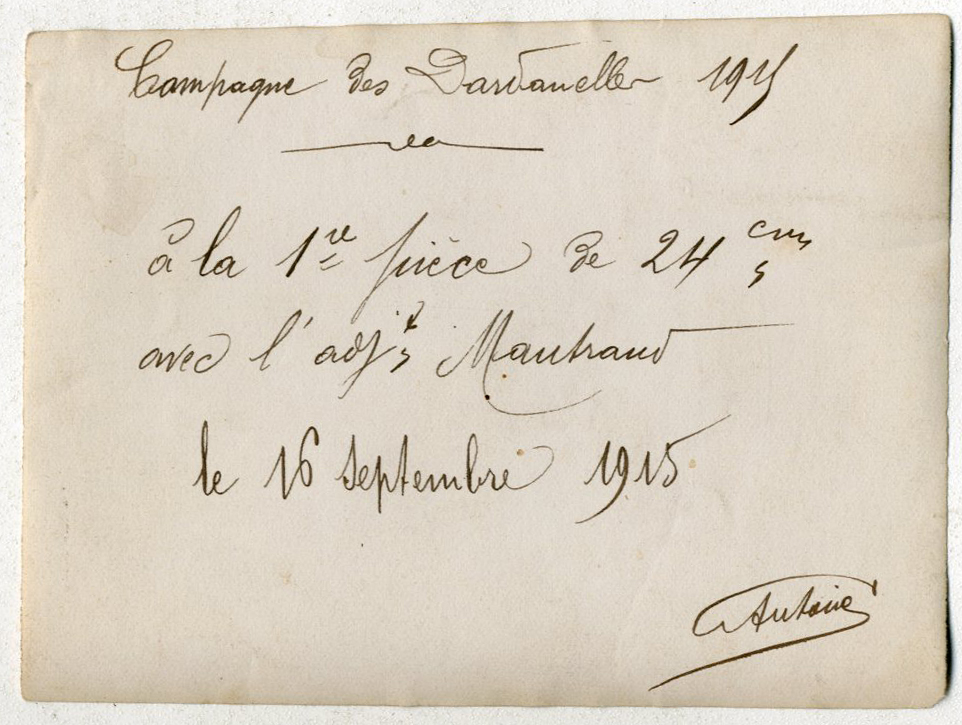 Campagne des Dardanelles 1915
à la 1re pièce de 24 cm
avec l'adjt Mautraud
le 16 septembre 1915
Antoine